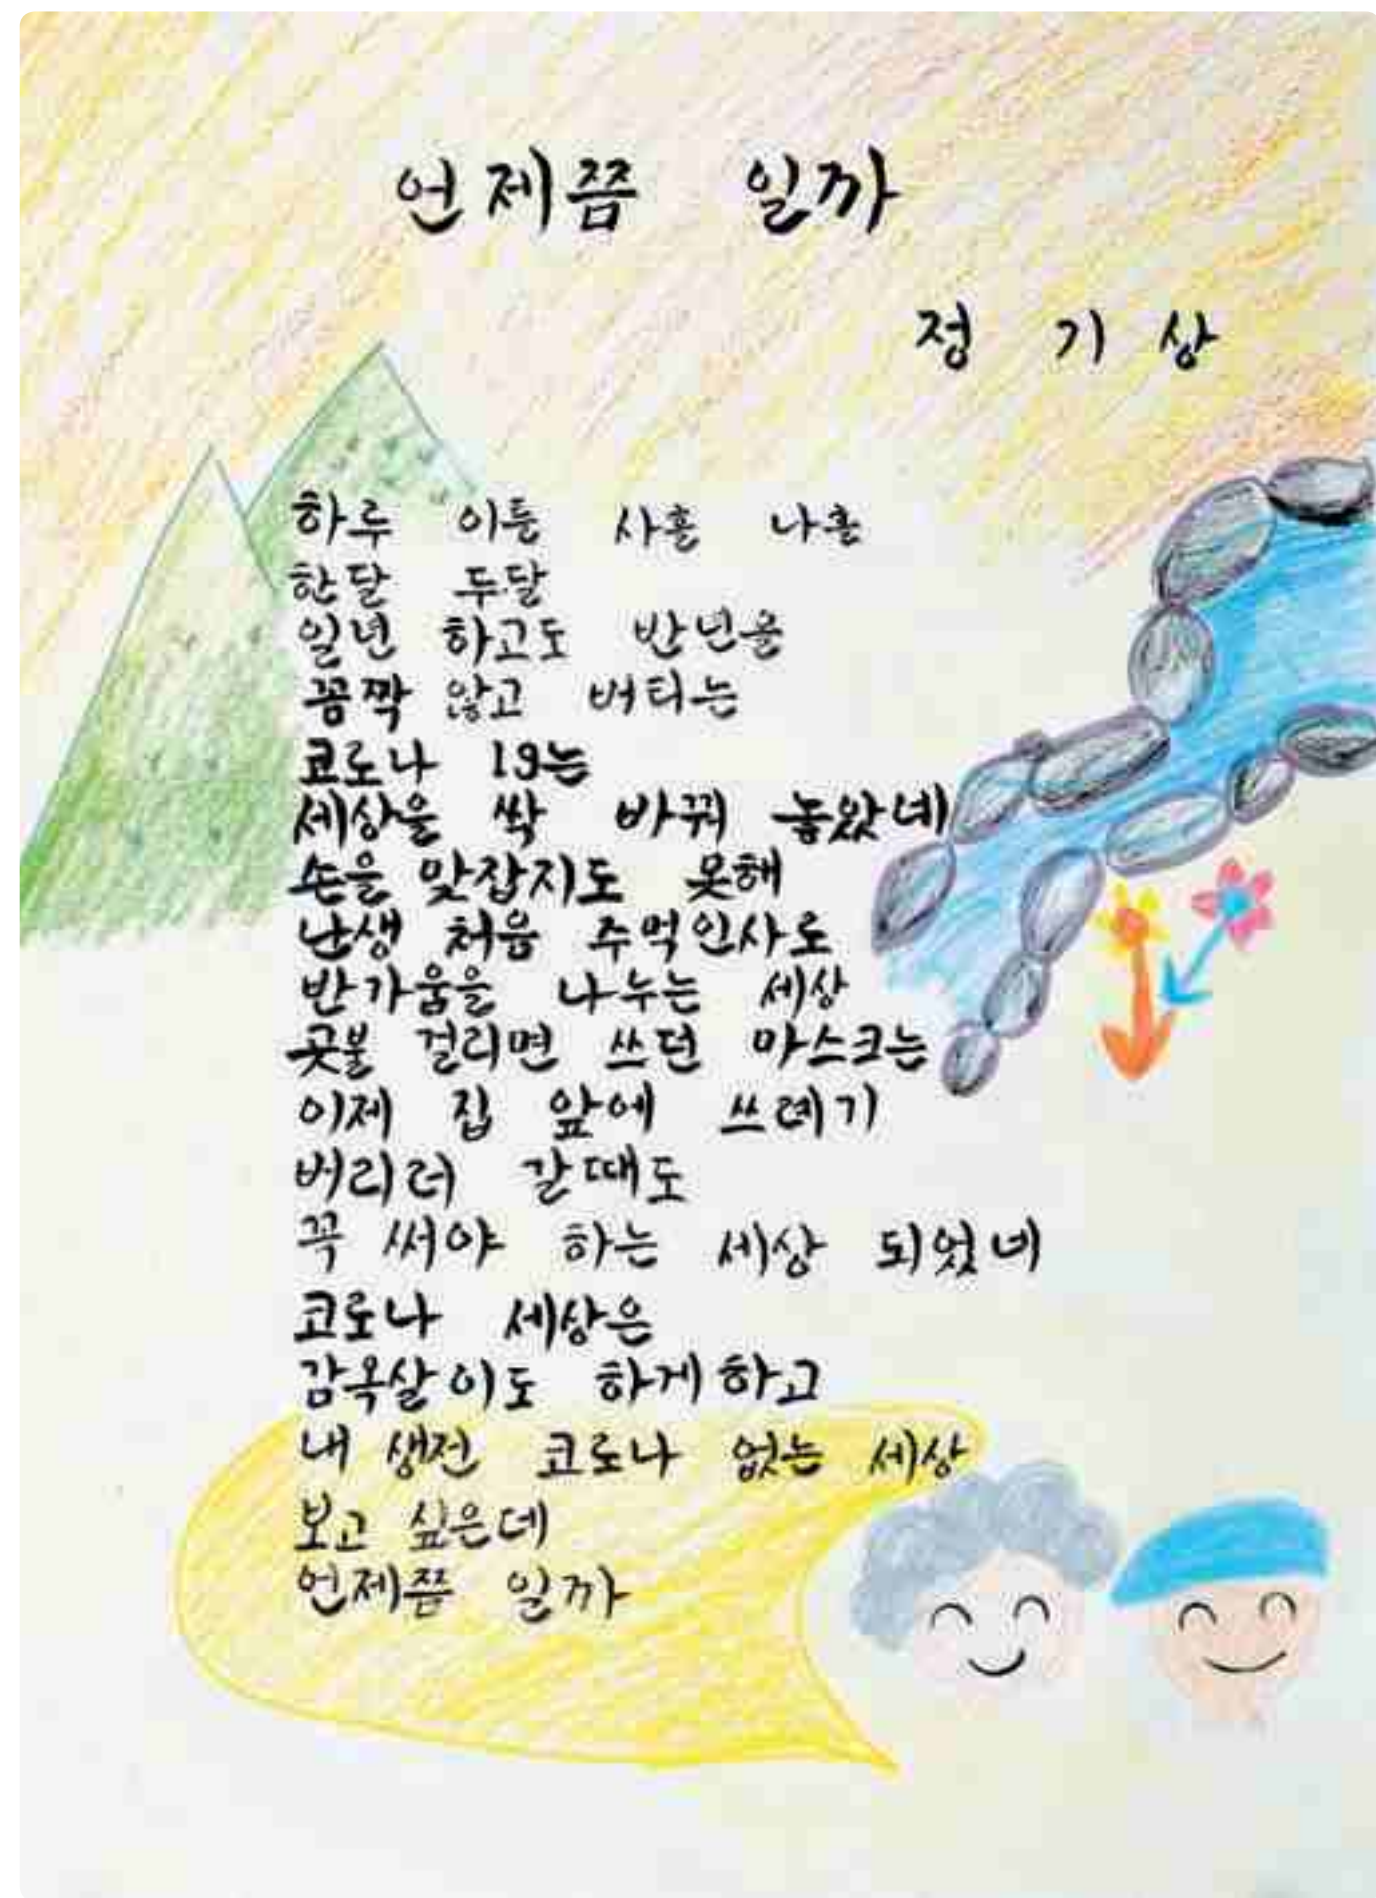 언제쯤 일까
정 기 상
하루 이틀 사흘 나흘
한달 두달
일년 하고도 반년을
꼼짝 않고 버티는
코로나 19는
세상을 싹 바꿔 놓았네
손을 맞잡지도 못해
난생 처음 주먹인사로
반가움을 나누는 세상
곳불 걸리면 쓰던 마스크는
이제 집 앞에 쓰레기
버리러 갈때도
꼭 써야 하는 세상 되었네
코로나 세상은
감옥살이도 하게하고
내 생전 코로나 없는 세상
보고 싶은데
언제쯤 일까